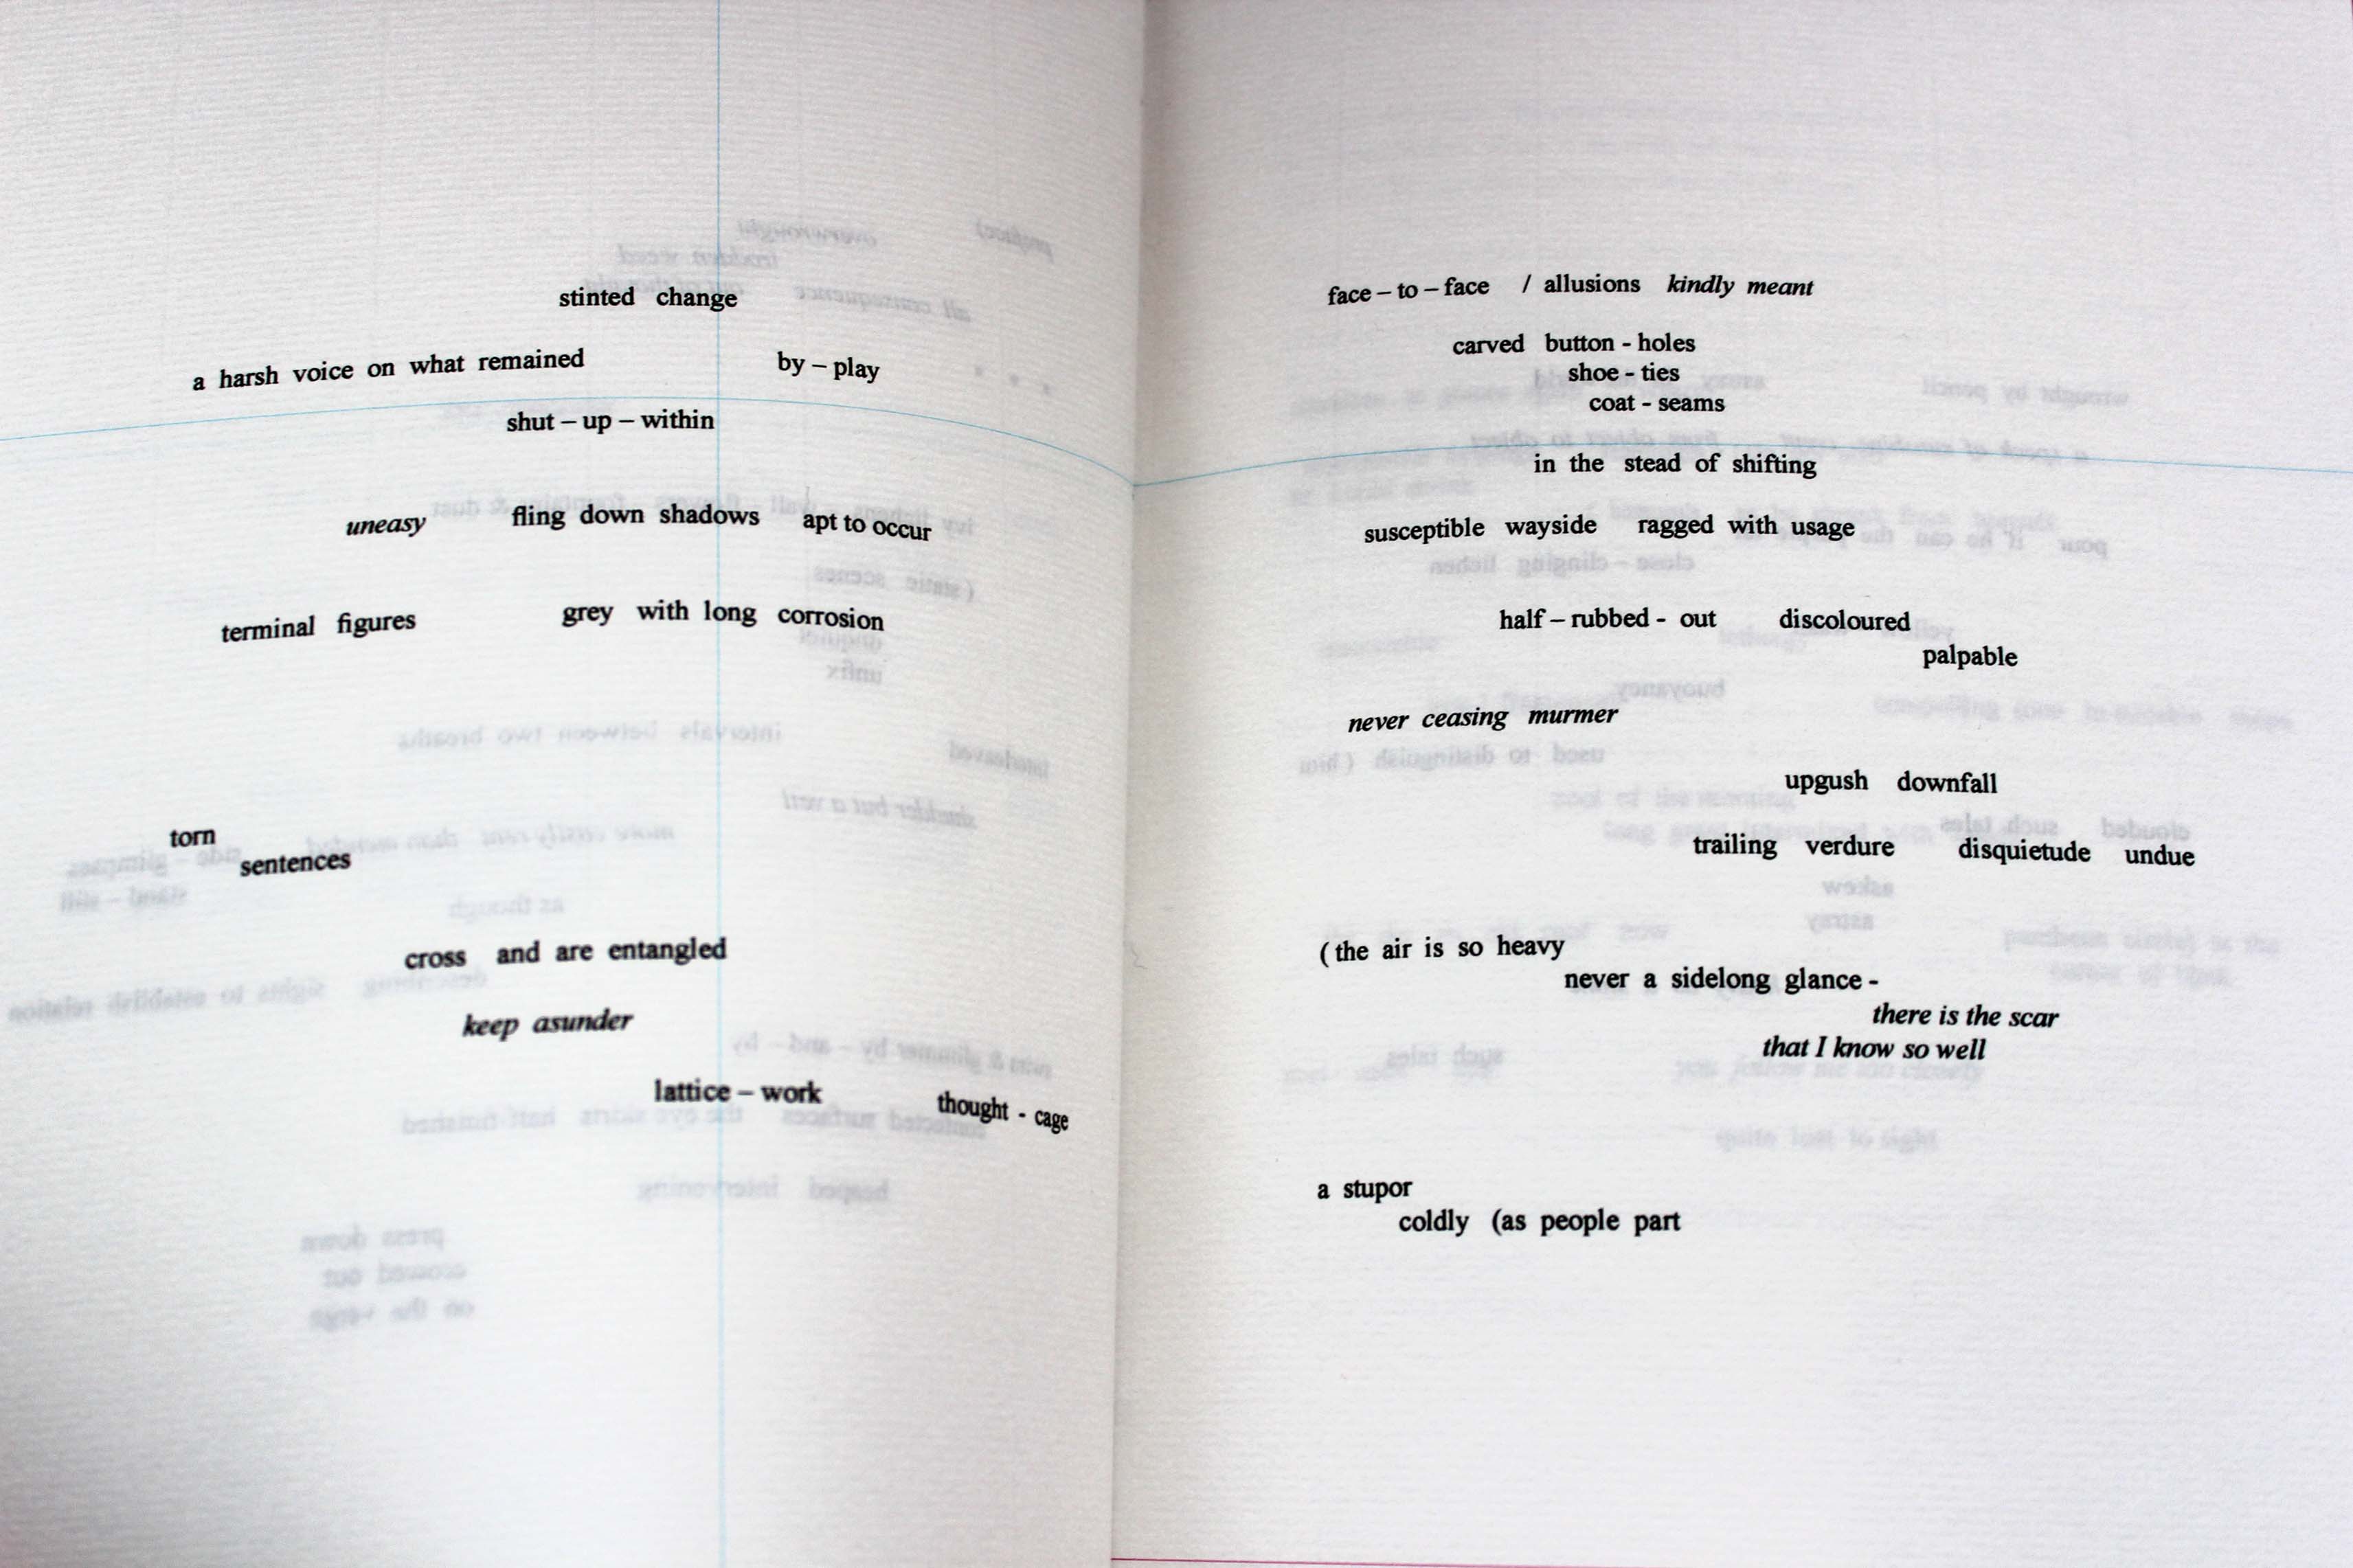 stinted change
a harsh voice on what remained by – play
shut – up – within
uneasy fling down shadows apt to occur
terminal figures grey with long corrosion
torn
sentences
cross and are entangled
keep asunder
lattice – work thought - cage
face – to – face / allusions kindly meant
carved button - holes
shoe - ties
coat - seams
in the stead of shifting
susceptible wayside ragged with usage
half – rubbed - out discoloured
palpable
never ceasing murmer
upgush downfall
trailing verdure disquietude undue
( the air is so heavy
never a sidelong glance -
there is the scar
that I know so well
a stupor
coldly (as people part